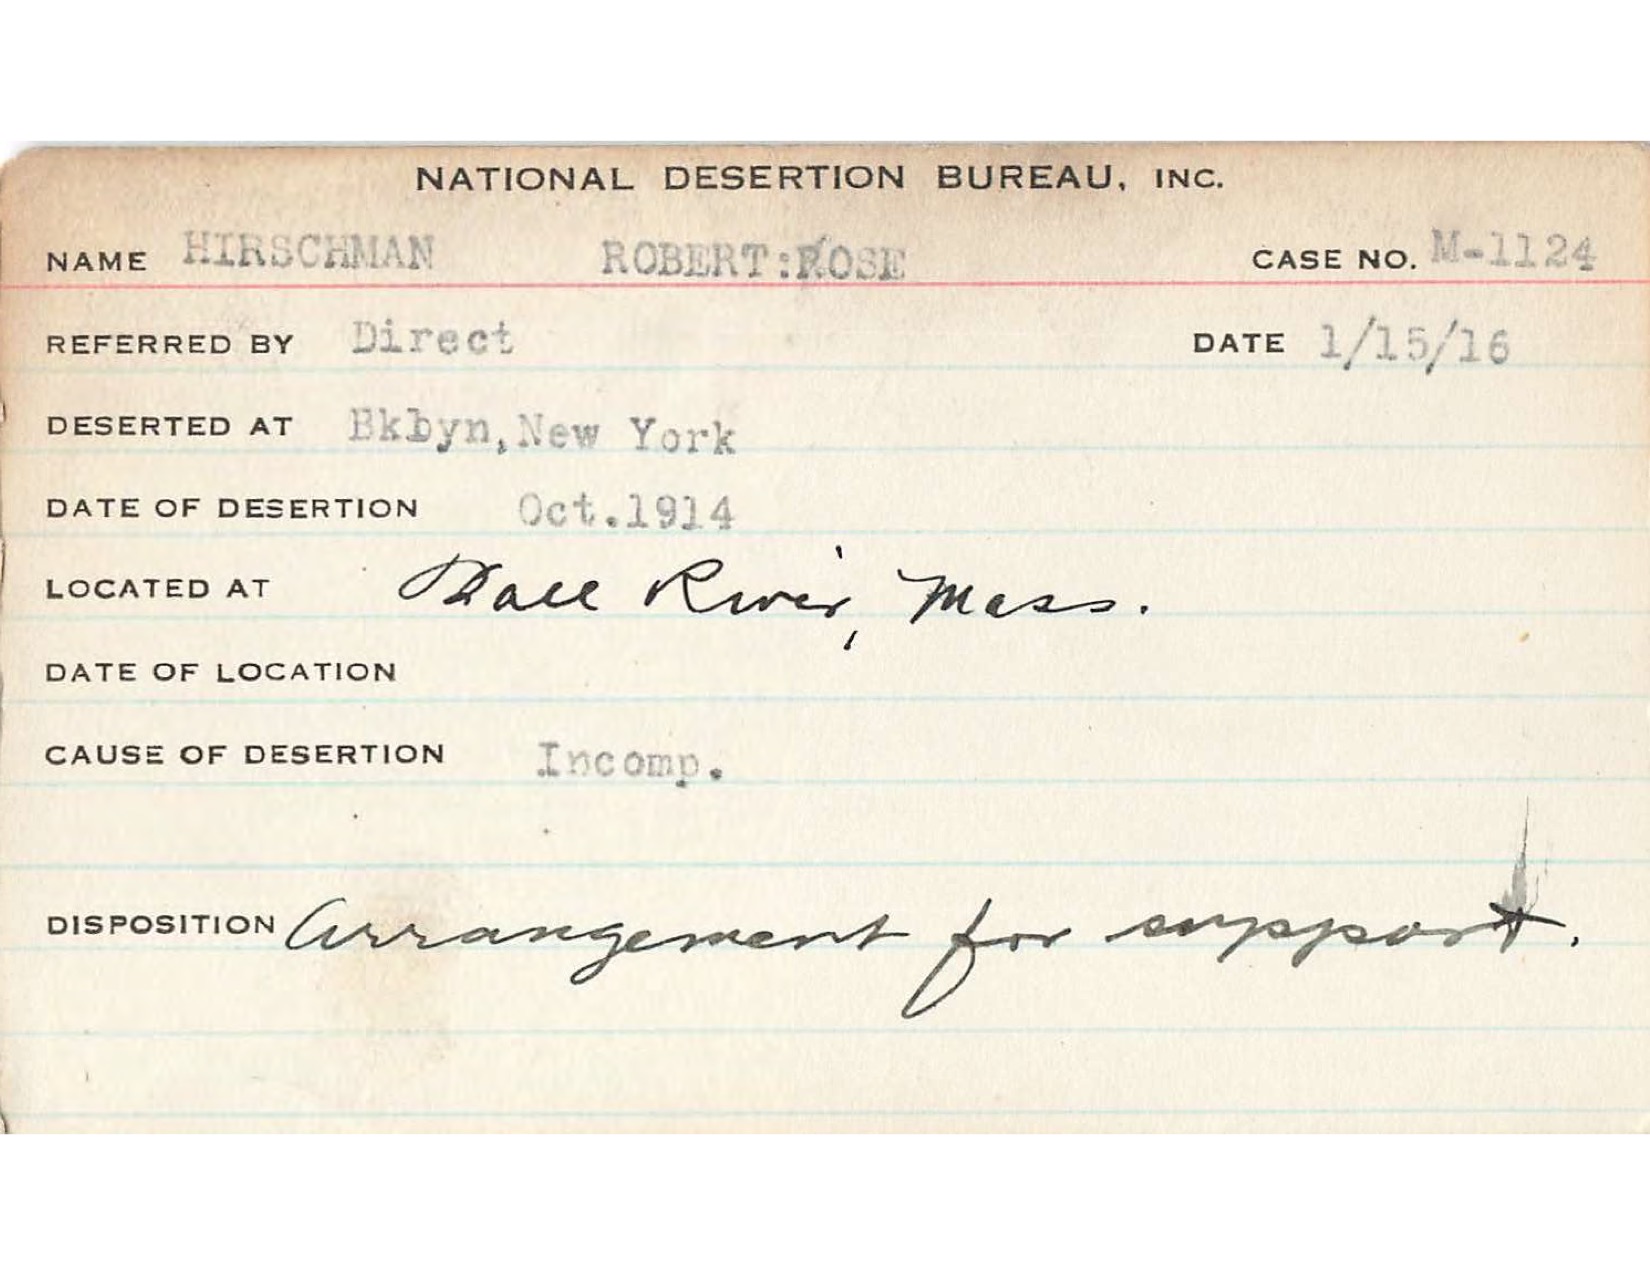 NATIONAL DESERTION BUREAU, INC.
NAME HIRSCHMAN ROBERT:ROSE CASE NO. M-1124
REFERRED BY Direct DATE 1/15/16
DESERTED AT Bkbyn, New York
DATE OF DESERTION Oct.1914
LOCATED AT Fall River, Mass.
DATE OF LOCATION
CAUSE OF DESERTION Incomp.
DISPOSITION Arrangement for support.